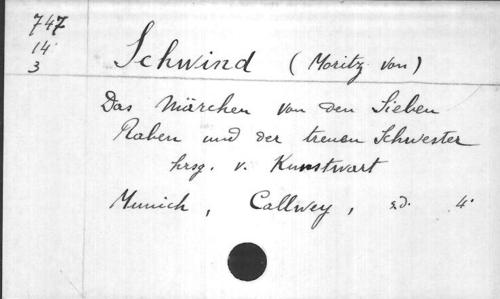 747
14
3
Schwind (Moritz von)
Das Märchen von den Sieben
Raben und der treuen Schwester
hrsg. v. Kunstwart
Munich, Callwey, s.d. 4°